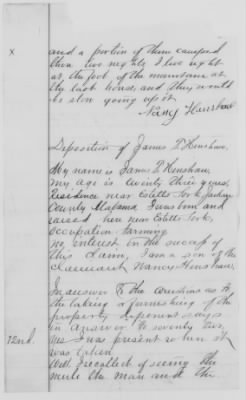 x
and a portion of them camped
there two nights I live right
at the foot of the mountain at
the last house, and they would
be slow going up it.
Nancy Henshaw
Deposition of James P. Henshaw.
My name is James P. Henshaw
my age is twenty three years,
Residence near Estills Fork Jackson
County Alabama I was born and
raised here near Estills Fork,
Occupation farming
no interest in the success of
this claim, I am a son of the
claimant Nancy Henshaw,
In answer to the Questions as to
the taking or furnishing of the
property deponent says
72nd.
in answer to seventy two,
Yes I was present when it
was taken
Well recollect of seeing the
mule the man and the